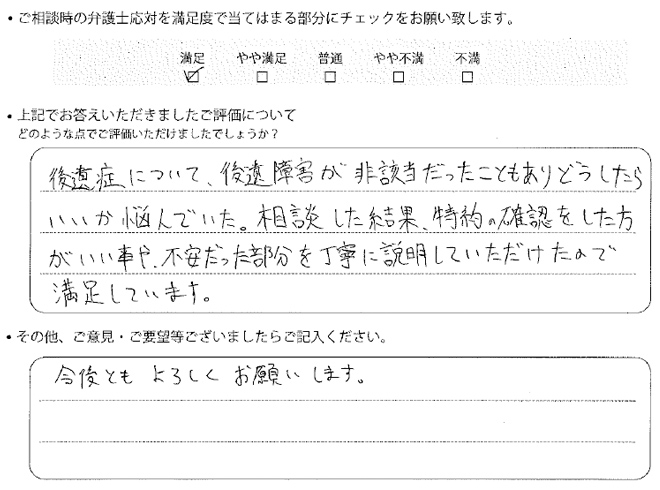 • ご相談時の弁護士応対を満足度で当てはまる部分にチェックをお願い致します。
満足 やや満足 普通 やや不満 不満
☑ □ □ □ □
• 上記でお答えいただきましたご評価について
どのような点でご評価いただけましたでしょうか？
後遺症について、後遺障害が非該当だったこともありどうしたら
いいか悩んでいた。相談した結果、特約の確認をした方
がいい事や、不安だった部分を丁寧に説明していただけたので
満足しています。
• その他、ご意見・ご要望等ございましたらご記入ください。
今後ともよろしくお願いします。